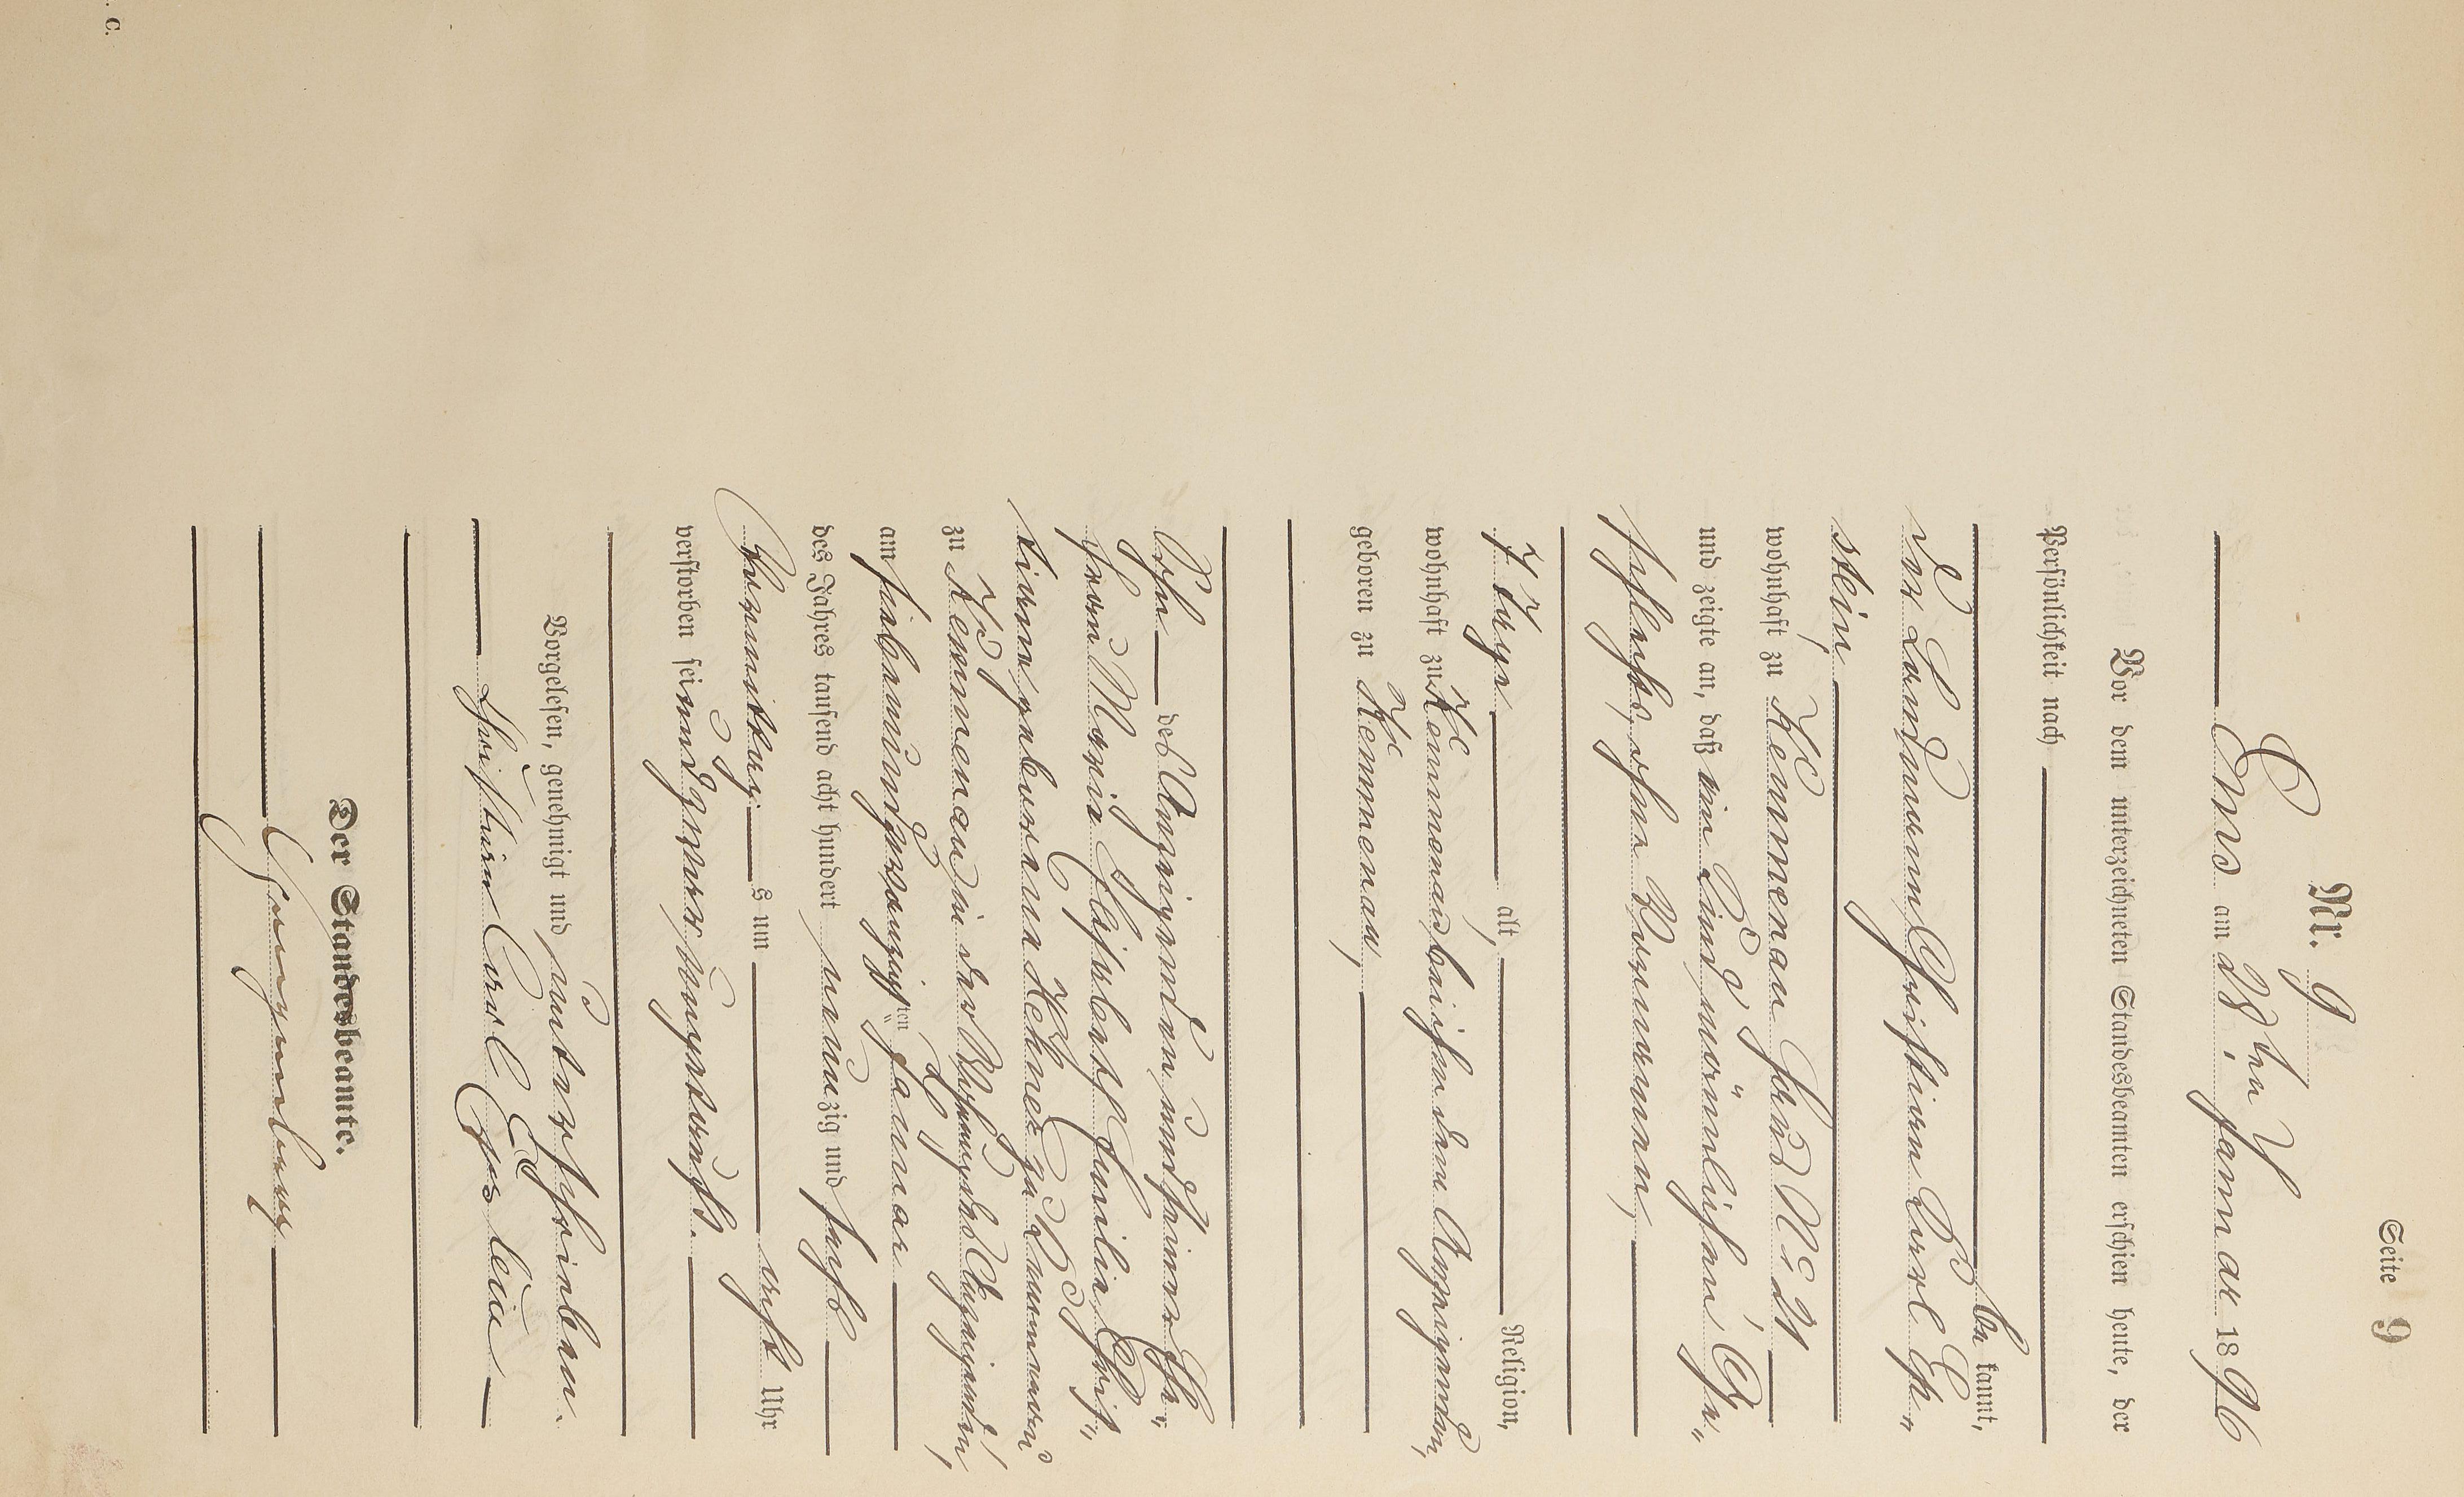 Seite 9
Nr. 9
Ems am 28ten Januar 1896
Vor dem unterzeichneten Standesbeamten erschien heute, der
Persönlichkeit nach
be kannt,
der Landmann Christian Carl Eps„
stein,
wohnhaft zu Kemmenau Haus No. 21
und zeigte an, daß ein Kind, männlichen Ge„
schlechts, ohne Vornamen,
7 Tage alt, Religion,
wohnhaft zu Kemmenau bei ihm dem Anzeigenden,
geboren zu Kemmenau,
Sohn des Anzeigenden und seiner Ehe„
frau Marie Elisabeth Emilie Chris„
tiane geborene zu Kemmenau
zu Kemmenau in der Wohnung des Anzeigenden,
am siebenundzwanzigsten Januar
des Jahres tausend acht hundert neunzig und sechs
Vormittags um acht Uhr
verstorben sei
Vorgelesen, genehmigt und unterschrieben.
Christian Carl Epstein
Der Standesbeamte.
C.